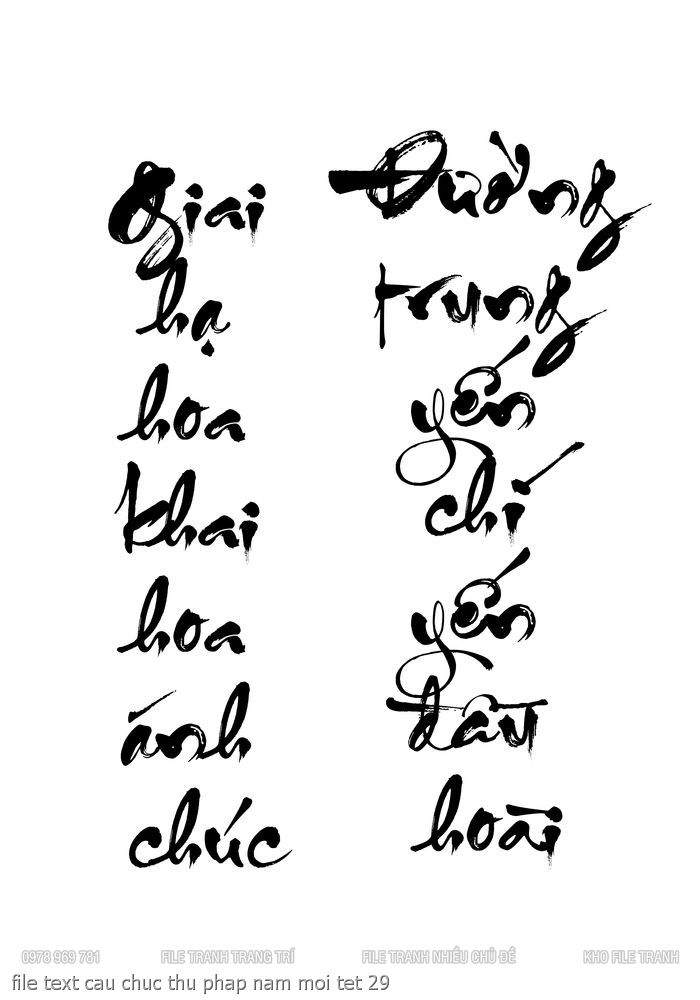 giai
hạ
hoa
khai
hoa
ánh
chúc
Đường
trung
yến
chí
yến
đâu
hoài
0978 969 781 FILE TRANH TRANG TRÍ FILE TRANH NHIỀU CHỦ ĐỀ KHO FILE TRANH
file text cau chuc thu phap nam moi tet 29